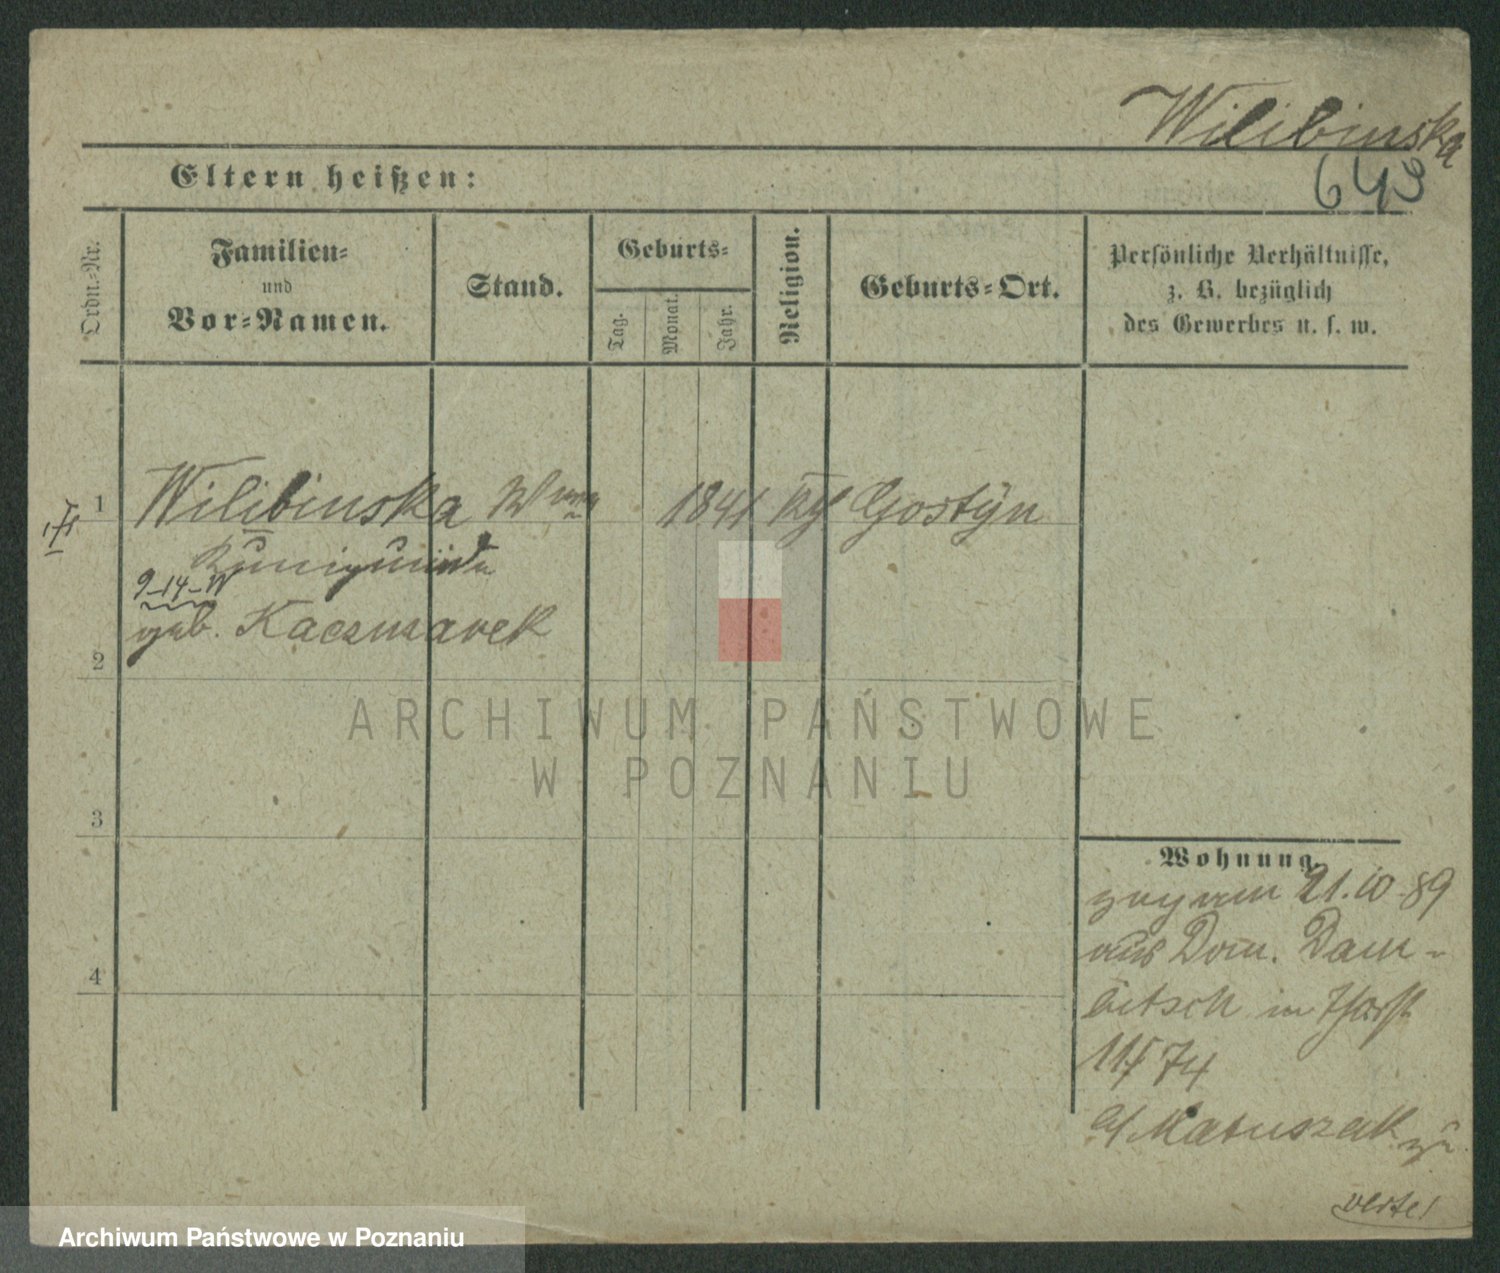 Wilibinska
643
Eltern heißen:
Ordn.-Nr.
Familien-
und
Vor-Namen.
Stand.
Geburts-
Tag.
Monat.
Jahr.
Religion.
Geburts-Ort.
Persönliche Verhältnisse,
z. B. bezüglich
des Gewerbes u. s. w.
1 Wilibinska 1841 kth Gostÿn
Kunigunda
9-14-W
geb. Kaczmarek
2
3
4
Wohnung.
zug am 21.10.89
aus Dom. Dam-
bitsch in
11/74
b/ Matuszak
verte!
ARCHIWUM PAŃSTWOWE
W POZNANIU
Archiwum Państwowe w Poznaniu